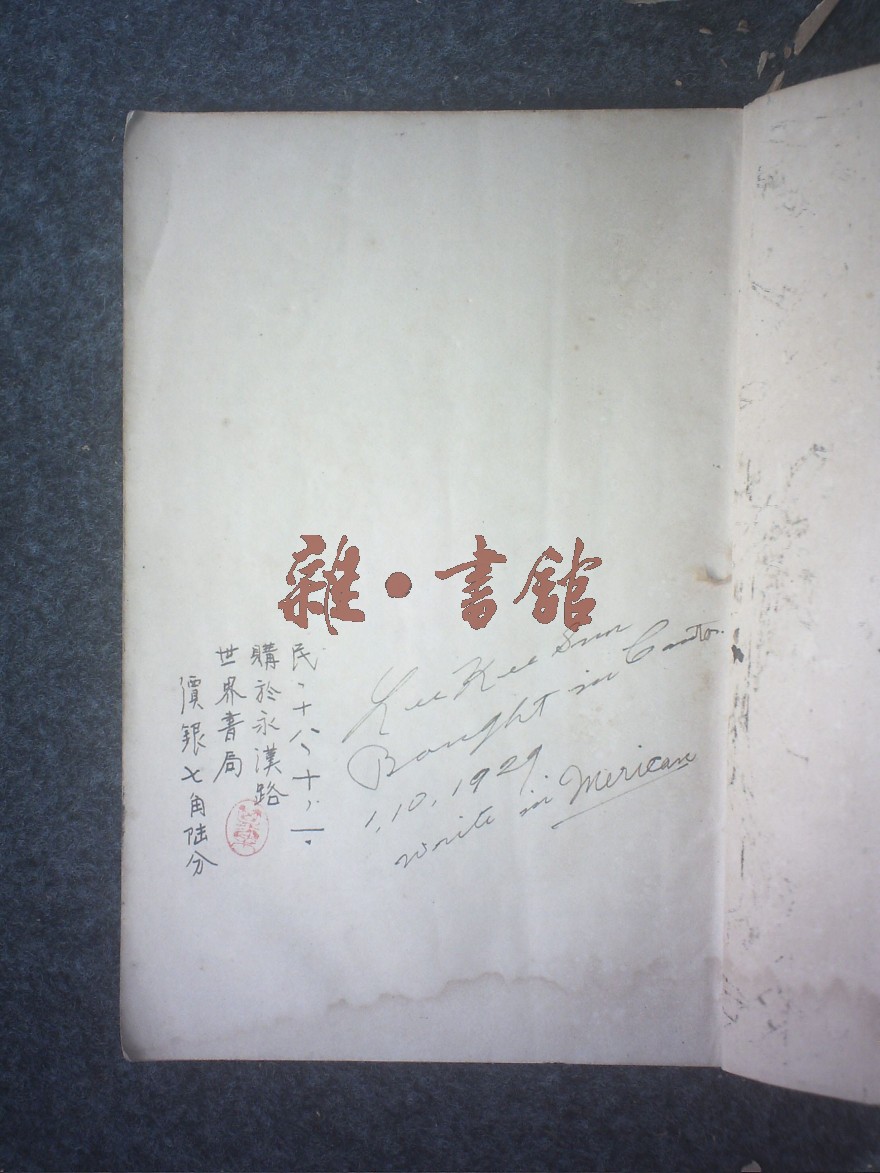 雜·書舘
民、十八、十、一.
購於永漢路
世界書局
價銀七角陆分
Lee Kee Sun
Bought in Canton.
1, 10, 1929
write in Merican